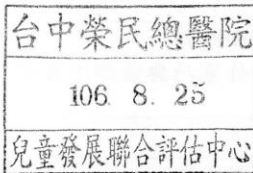 台中榮民總醫院
106. 8. 25
兒童發展聯合評估中心